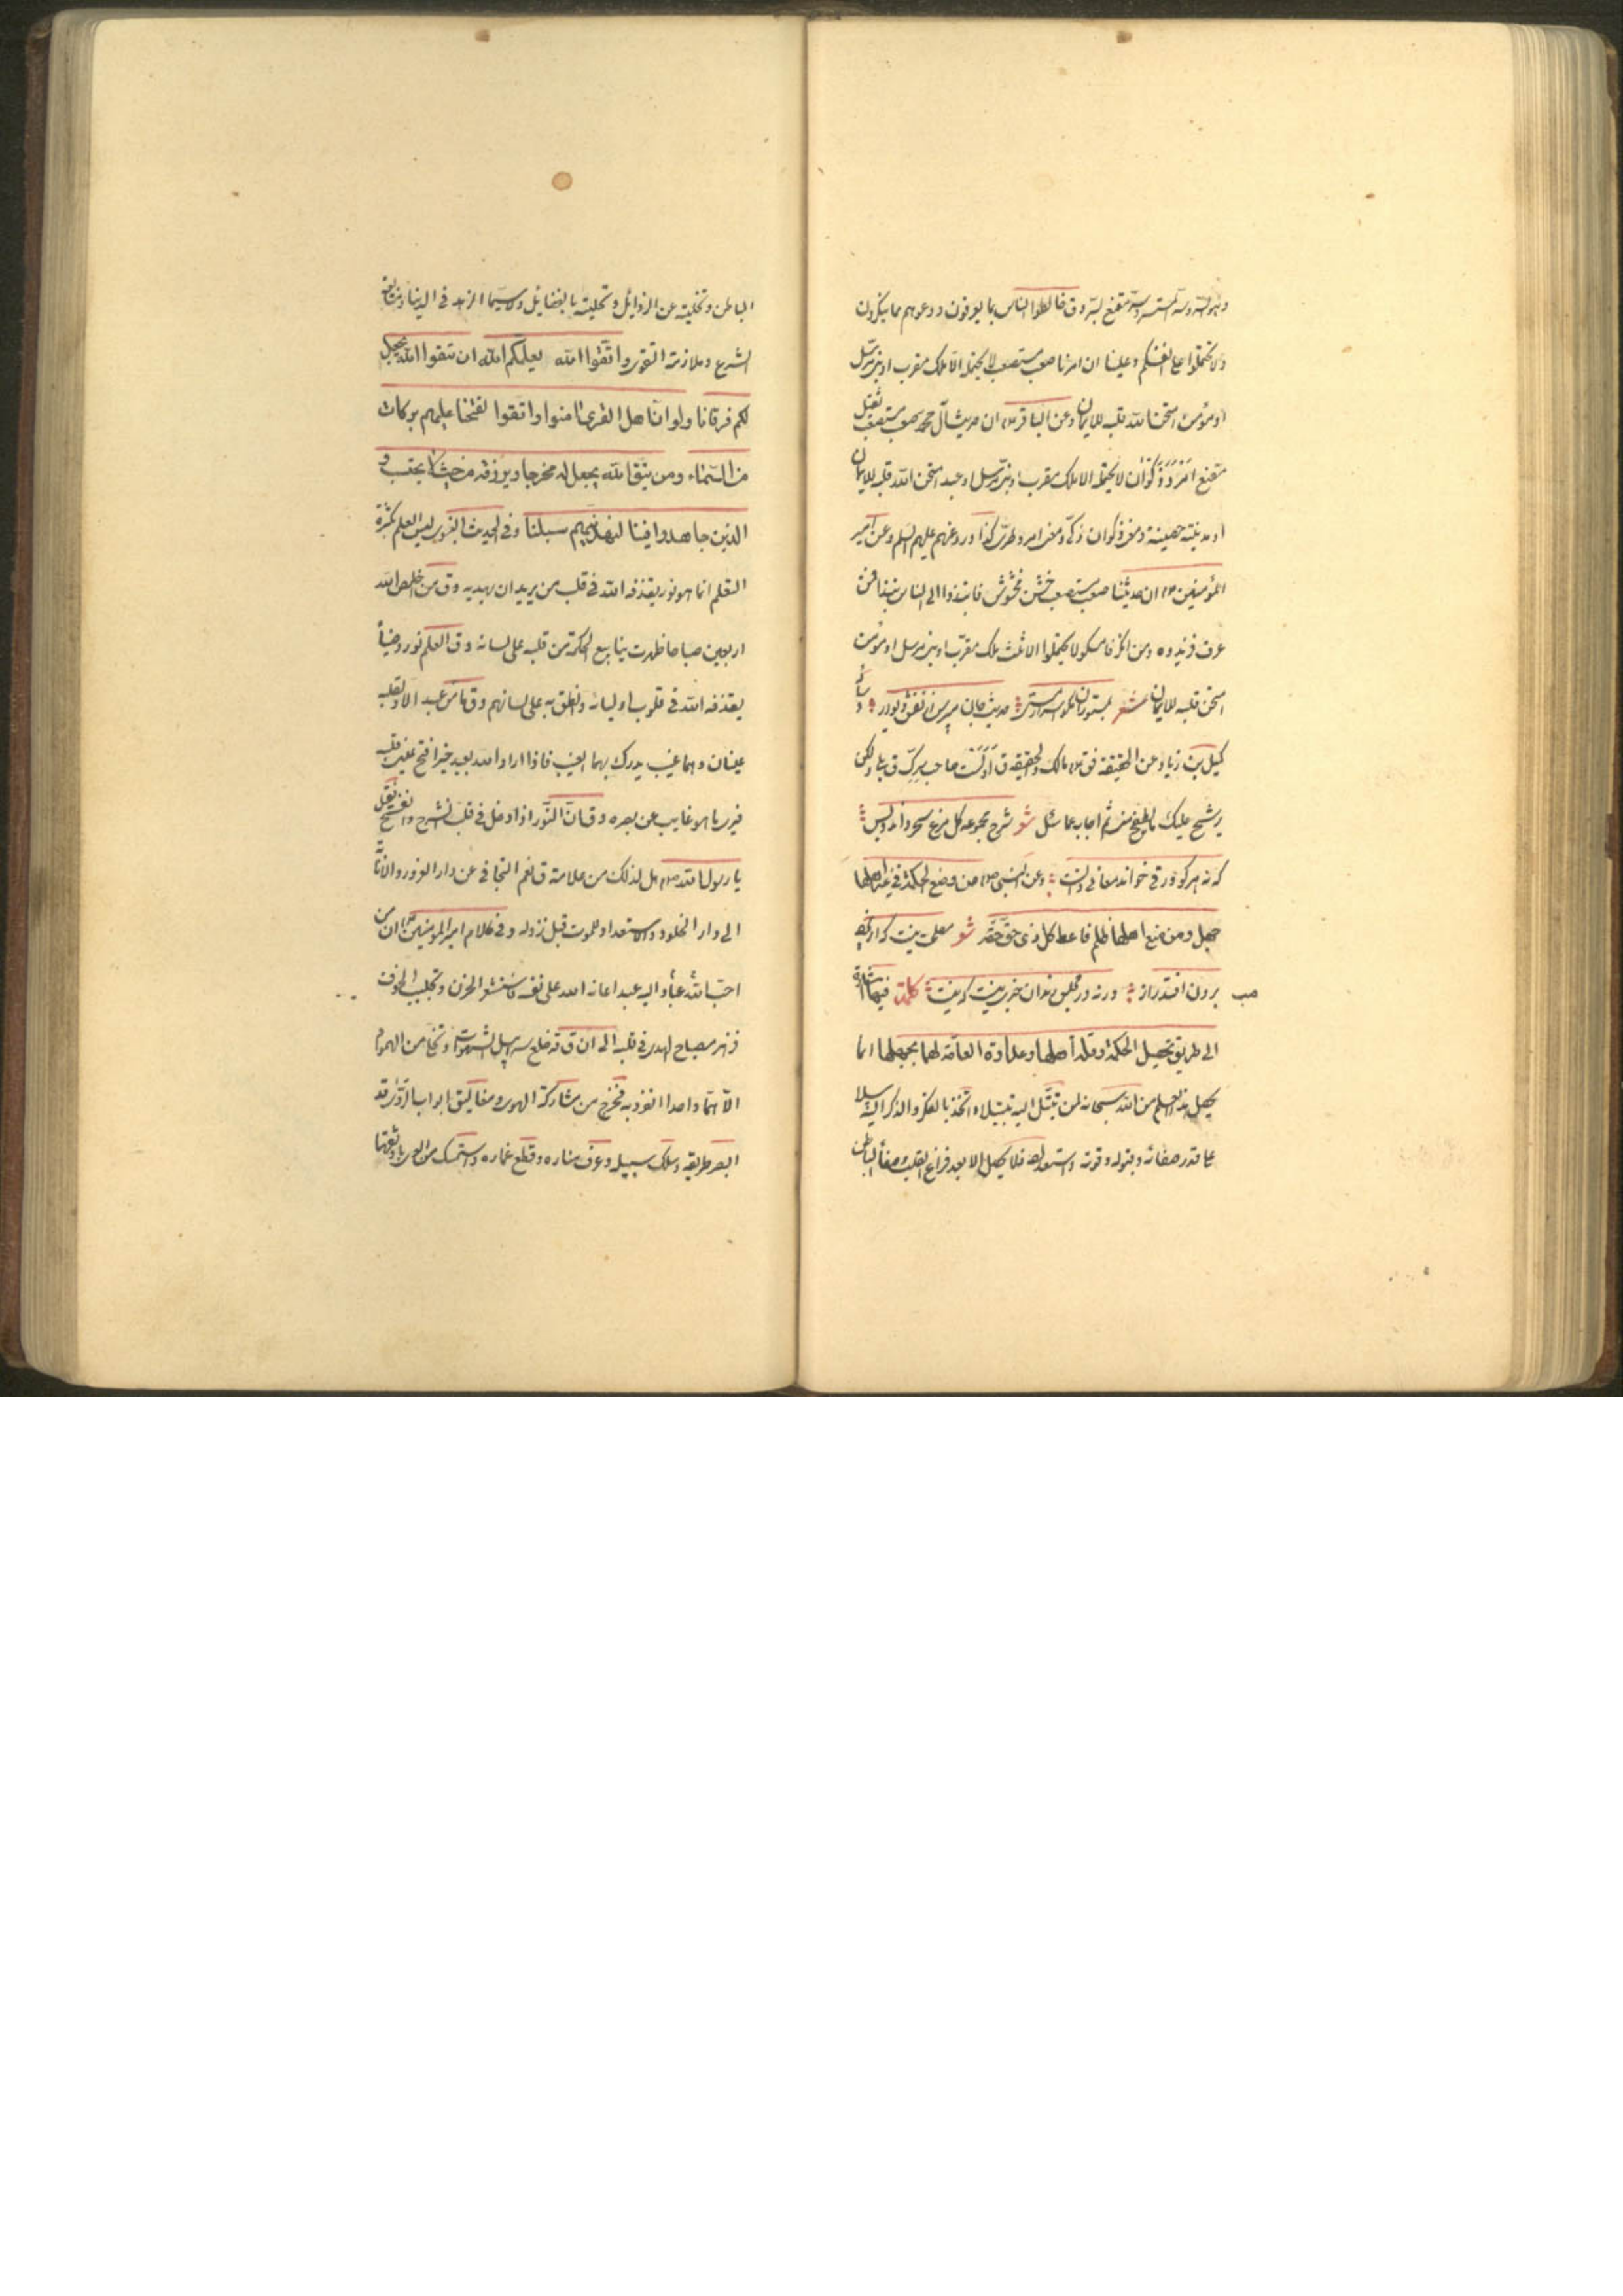 وهو السر وسر المستسر وسر مقنع بالسر وق خالطوا الناس بما يعرفون ودعوهم مما ينكرون
ولا تحملوا على انفسكم وعلينا ان امرنا صعب مستصعب لا يحتمله الا ملك مقرب او نبي مرسل
او مؤمن امتحن الله قلبه للايمان وعن الباقر ان حديث آل محمد صعب مستصعب ثقيل
مقنع امرد ذكوان لا يحتمله الا ملك مقرب او نبي مرسل او عبد امتحن الله قلبه للايمان
او مدينة حصينة ومعنى ذكوان ذكي ومعنى امرد طري كذا ورد عنهم عليهم السلم وعن امير
المؤمنين ان حديثنا صعب مستصعب خشن مخشوش فانبذوا الى الناس نبذا فمن
عرف فزيدوه ومن انكر فامسكوا لا يحتملوا الا ثلث ملك مقرب او نبي مرسل او مؤمن
امتحن قلبه للايمان شعر بمستوران مكو اسرار مستى حديث جان مپرس از نقش ديوار وسأله
كميل بن زياد عن الحقيقة فق مالك والحقيقة ق اولست صاحب سرك ق بلى ولكن
يرشح عليك ما يطفح مني ثم اجابه عما سئل شعر شرح مجموعه كل مرغ سحر داند وبس
كه نه هر كو ورقى خواند معانى دانست وعن النبي من وضع الحكمة في غير اهلها
جهل ومن منع اهلها ظلم فاعط كل ذى حق حقه شعر مصلحت نيست كه از پرده
برون افتد راز ورنه در مجلس رندان خبرى نيست كه نيست كلمة فيها اشارة
الى طريق تحصيل الحكمة وقلة اهلها وعداوة العامة لها بجهلها انما
يحصل هذا العلم من الله سبحانه لمن تبتل اليه تبتيلا واتخذ بالفكر والذكر اليه سبيلا
على قدر صفائه وقبوله وقوته واستعداده فلا يحصل الا بعد فراغ القلب وصفاء الباطن
الباطن وتخليته عن الرذائل وتحليته بالفضايل ولا سيما الزهد في الدنيا ومتابعة
الشرع وملازمة التقوى واتقوا الله يعلمكم الله ان تتقوا الله يجعل
لكم فرقانا ولو ان اهل القرى امنوا واتقوا لفتحنا عليهم بركات
من السماء ومن يتق الله يجعل له مخرجا ويرزقه من حيث لا يحتسب و
الذين جاهدوا فينا لنهدينهم سبلنا وفي الحديث النبوي ليس العلم بكثرة
التعلم انما هو نور يقذفه الله في قلب من يريد ان يهديه وق من اخلص لله
اربعين صباحا ظهرت ينابيع الحكمة من قلبه على لسانه وق العلم نور وضياء
يقذفه الله في قلوب اوليائه وانطق به على لسانهم وق ما من عبد الا ولقلبه
عينان وهما غيب يدرك بهما الغيب فاذا اراد الله بعبد خيرا فتح عينى قلبه
فيرى ما هو غايب عن بصره وق ان النور اذا دخل في قلب انشرح وانفسح قيل
يا رسول الله هل لذلك من علامة ق نعم التجافي عن دار الغرور والانابة
الى دار الخلود والاستعداد للموت قبل نزوله وفي كلام امير المؤمنين ان من
احب عباد الله اليه عبدا اعانه الله على نفسه فاستشعر الحزن وتجلبب الخوف
فزهر مصباح الهدى في قلبه الى ان ق قد خلع سرابيل الشهوات وتخلى من الهموم
الا هما واحدا انفرد به فخرج من مشاركة الهوى ومغاليق ابواب الردى قد
ابصر طريقه وسلك سبيله وعرف مناره وقطع غماره واستمسك من العرى باوثقها